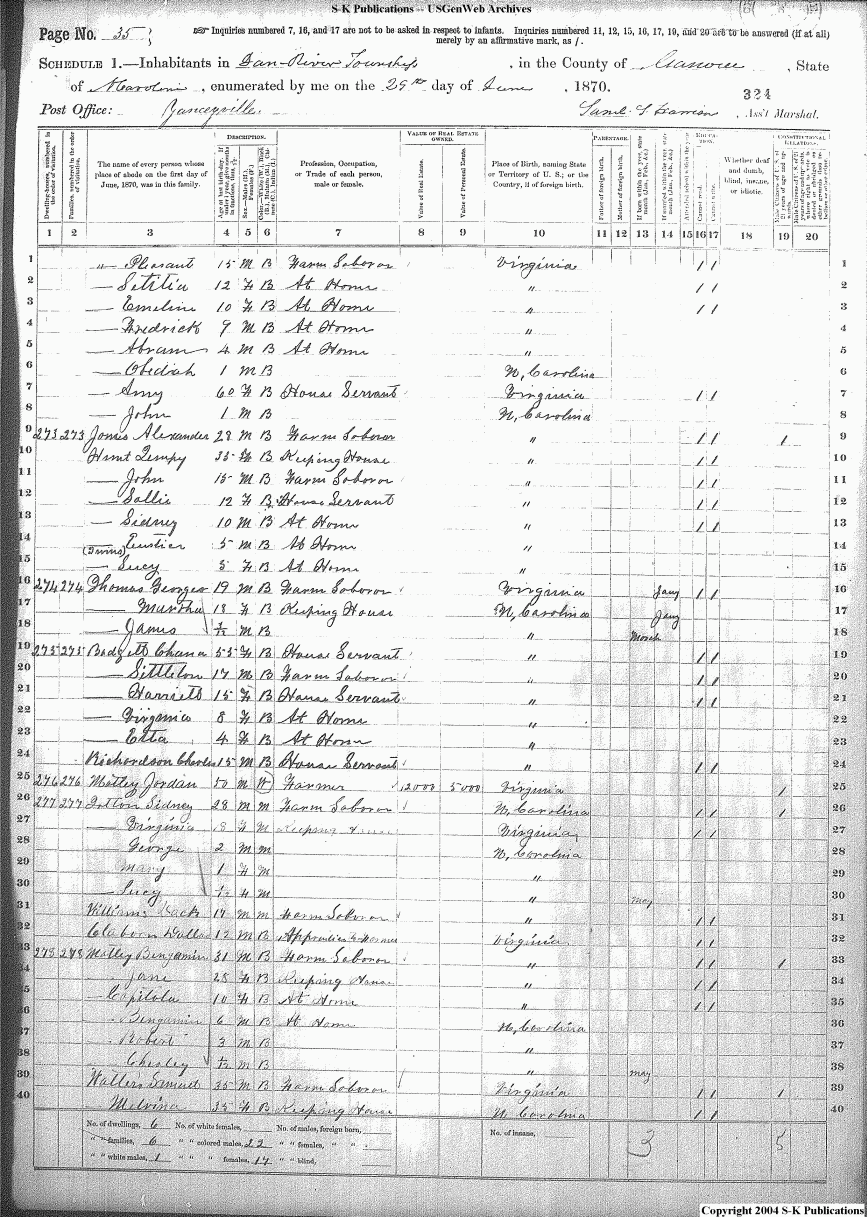 S-K Publications -- USGenWeb Archives
Page No. 35
Inquiries numbered 7, 16, and 17 are not to be asked in respect to infants. Inquiries numbered 11, 12, 15, 16, 17, 19, and 20 are to be answered (if at all) merely by an affirmative mark, as /.
SCHEDULE 1.—Inhabitants in Dan-River Township, in the County of , State
of N Carolina, enumerated by me on the 29th day of June, 1870.
324
Post Office: Yanceyville
Saml. , Ass't Marshal.
DESCRIPTION. VALUE OF REAL ESTATE OWNED. PARENTAGE. CONSTITUTIONAL RELATIONS.
Dwelling-houses, numbered in the order of visitation.
Families, numbered in the order of visitation.
The name of every person whose place of abode on the first day of June, 1870, was in this family.
Profession, Occupation, or Trade of each person, male or female.
Value of Real Estate.
Value of Personal Estate.
Place of Birth, naming State or Territory of U. S.; or the Country, if of foreign birth.
Father of foreign birth.
Mother of foreign birth.
Whether deaf and dumb, blind, insane, or idiotic.
1 2 3 4 5 6 7 8 9 10 11 12 13 14 15 16 17 18 19 20
1 " — Pleasant 15 M B Farm Laborer Virginia / / 1
2 — Letitia 12 F B At Home " / / 2
3 — Emeline 10 F B At Home " / / 3
4 — Fredrick 9 M B At Home " 4
5 — Abram 4 M B At Home " 5
6 — Obediah 1 M B N, Carolina 6
7 — Amy 60 F B House Servant Virginia / / 7
8 — John 1 M B N, Carolina 8
9 273 273 Jones Alexander 28 M B Farm Laborer " / / / 9
10 Hunt Tempy 35 F B Keeping House " / / 10
11 — John 15 M B Farm Laborer " / / 11
12 — Sallie 12 F B House Servant " / / 12
13 — Sidney 10 M B At Home " / / 13
14 (Twins) 5 M B At Home " 14
15 — Lucy 5 F B At Home " 15
16 274 274 Thomas George 19 M B Farm Laborer Virginia Jany / / 16
17 — Martha 18 F B Keeping House N, Carolina Jany 17
18 — James M B " March 18
19 275 275 Badgett Chana 55 F B House Servant " / / 19
20 — Littleton 17 M B Farm Laborer " / / 20
21 — Harriett 15 F B House Servant " / / 21
22 — Virginia 8 F B At Home " 22
23 — Etta 4 F B At Home " 23
24 Richardson Charles 15 M B House Servant " / / 24
25 276 276 Motley Jordan 50 M W Farmer 12000 5000 Virginia / 25
26 277 277 Sidney 28 M M Farm Laborer N, Carolina / / / 26
27 — Virginia 18 F M Keeping House Virginia / / 27
28 — George 2 M M N, Carolina 28
29 — Mary 1 F M " 29
30 — Lucy F M " May 30
31 Williams 17 M M Farm Laborer " / / 31
32 Claborn 12 M B Apprentice to Farmer Virginia / / 32
33 278 278 Motley Benjamin 31 M B Farm Laborer " / / / 33
34 — Jane 28 F B Keeping House " / / 34
35 — Capitola 10 F B At Home " / / 35
36 — Benjamin 6 M B At Home N, Carolina 36
37 — Robert 3 M B " 37
38 — Chesley M B " May 38
39 Walters Samuel 35 M B Farm Laborer Virginia / / / 39
40 — Melvina 35 F B Keeping House N Carolina / / 40
No. of dwellings, 6 No. of white females, No. of males, foreign born, No. of insane,
" " families, 6 " " colored males, 22 " " females, " " 3 5
" " white males, 1 " " " females, 17 " " blind,
Copyright 2004 S-K Publications